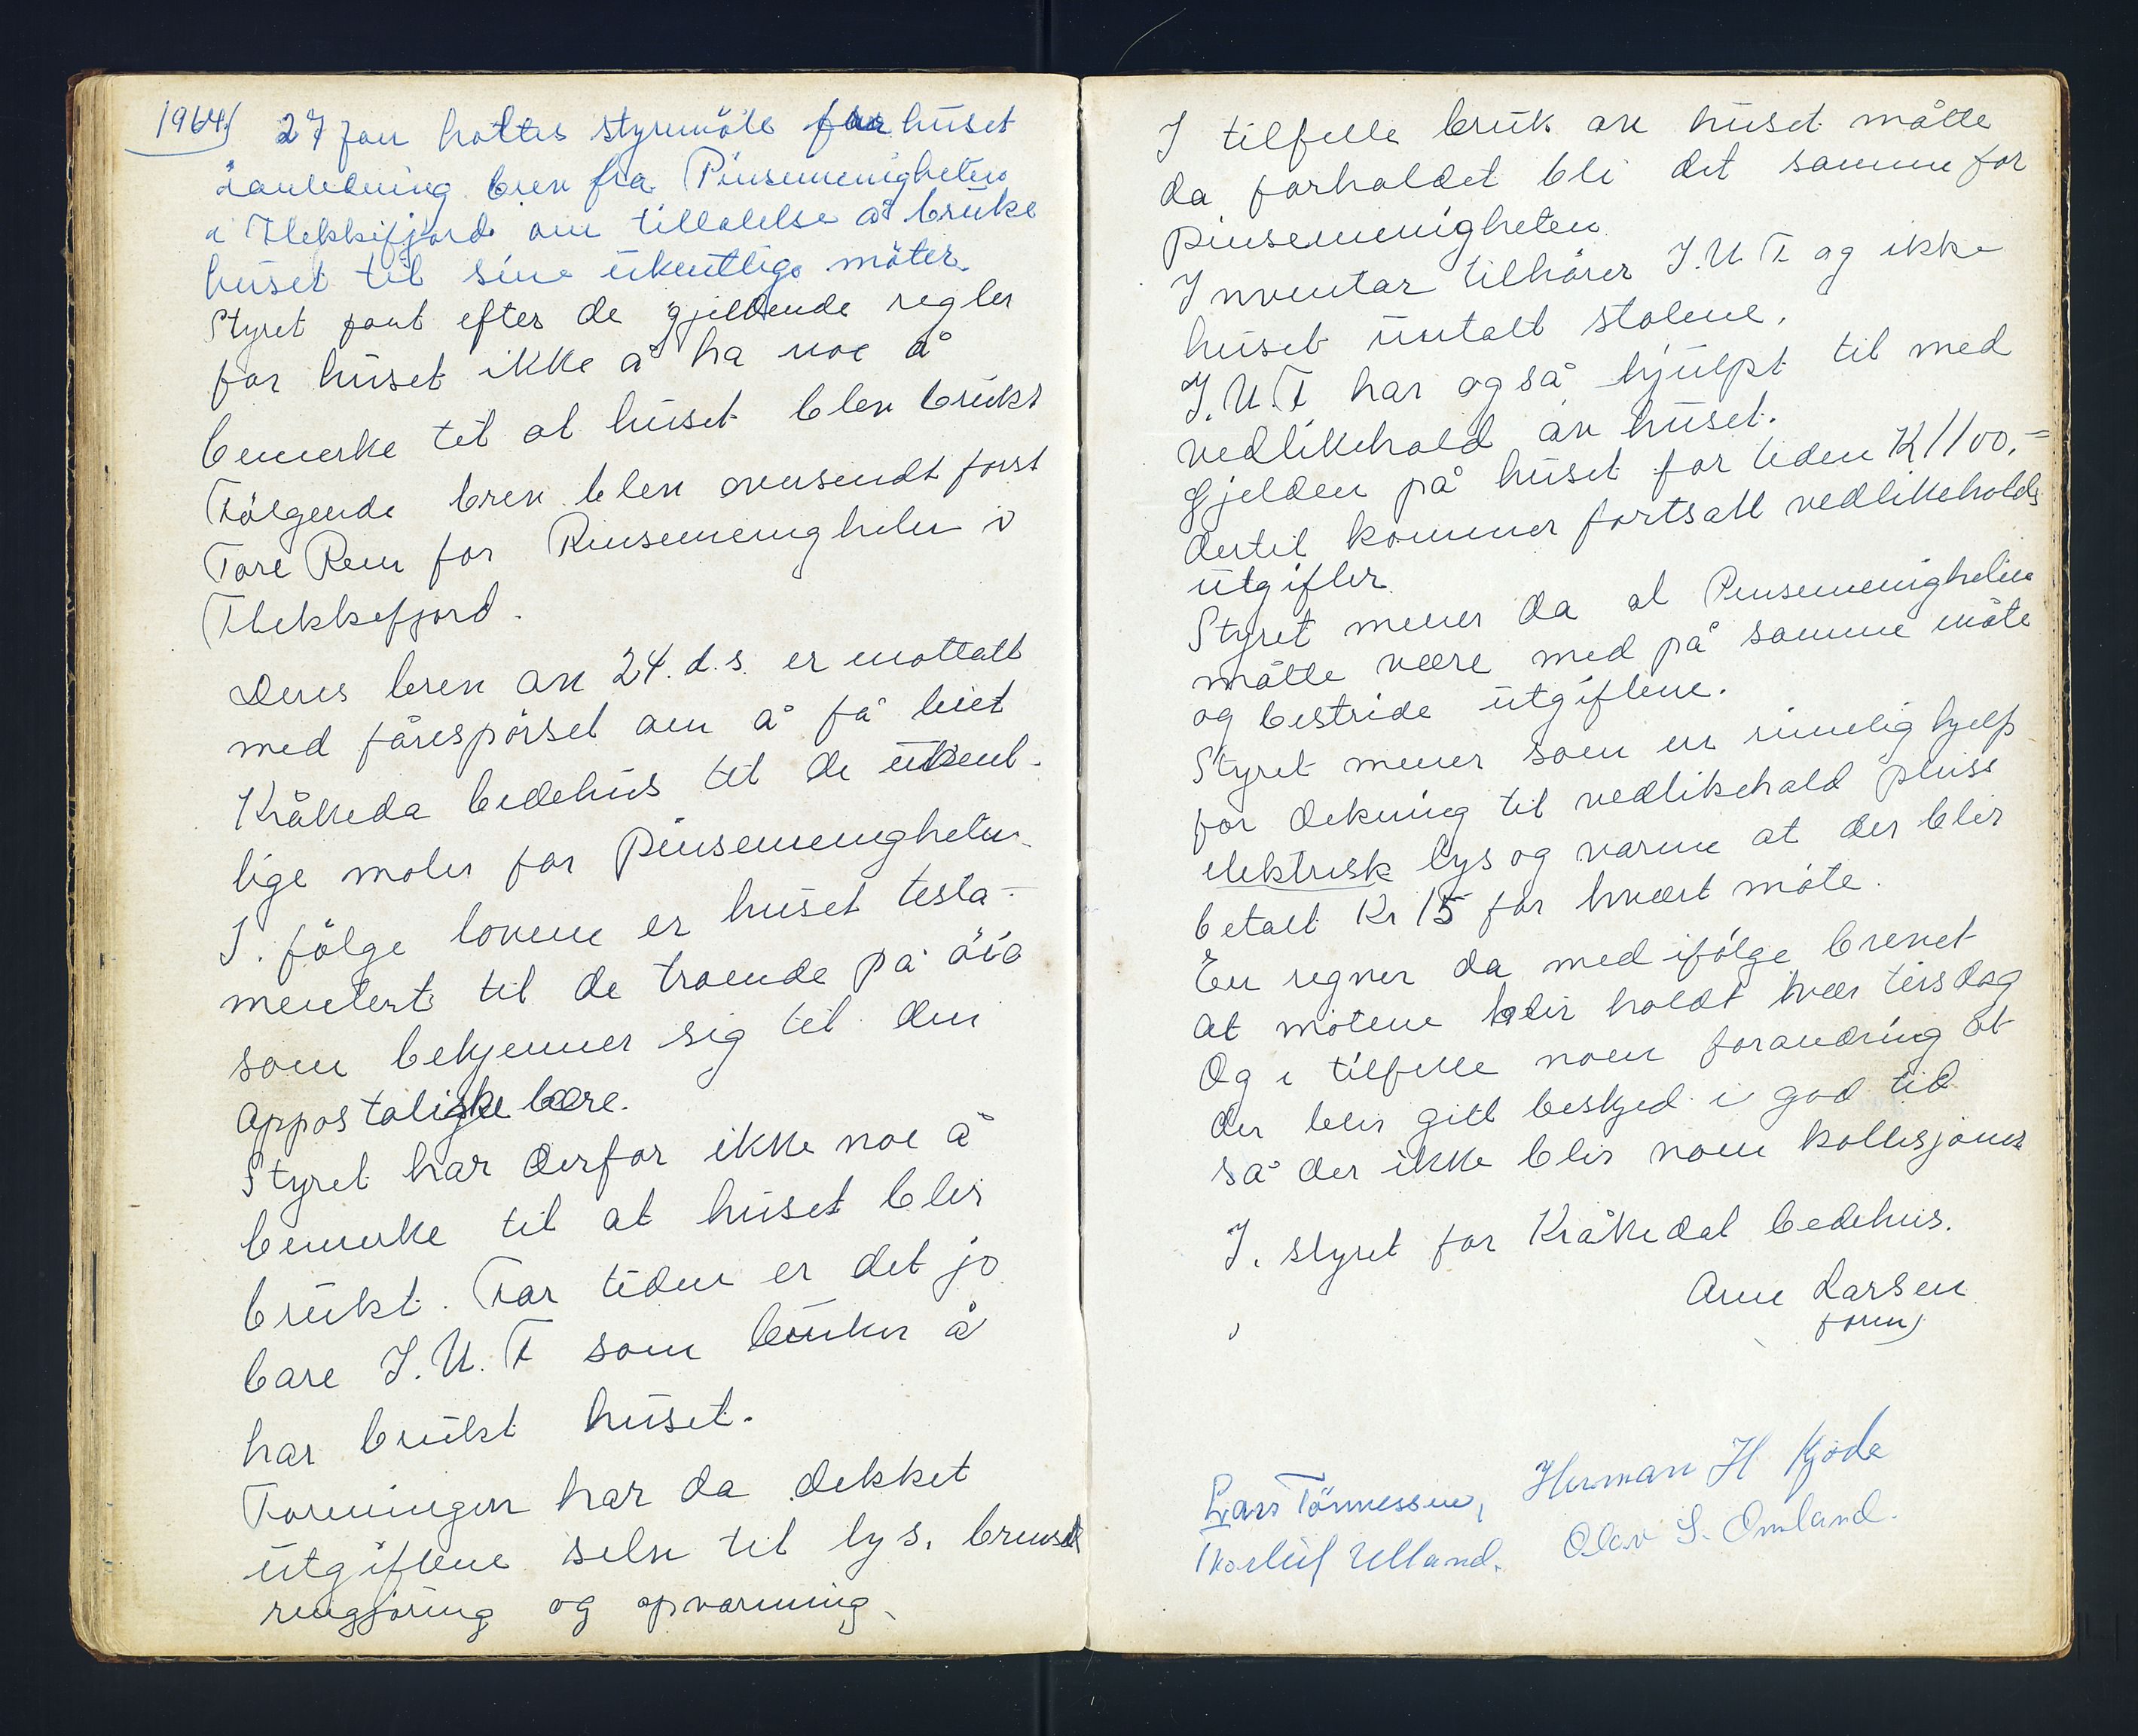 1964/ 27 jan holtes styremöte for huset
i anledning brev fra Pinsemenigheten
i Flekkefjord om tillatelse å brüke
hüset til sine ükentlige möter.
Styret fant efter de gjeldende regler
for hüset ikke å ha noe å
bemerke til at hüset blev brükt
Fölgende brev blev oversendt först
Tore Rem for Pinsemenigheten i
Flekkefjord.
Deres brev av 24. d.s. er mottatt
med förespörsel om å få leiet
Kråkeda bedehüs til de ükent-
lige moter for Pinsemenigheten.
I. fölge lovene er hüset testa-
mentert til de troende på
som bekjenner sig til den
appostoliske lære.
Styret har derfor ikke noe å
bemerke til at hüset blir
brükt. For tiden er det jo
bare I.U.F som brüker å
har brükt hüset.
Foreningen har da dekket
ütgiftene selv til lys, brensel
rengjöring og opvarming.
I tilfelle brük av hüset måtte
da forholdet bli det samme for
pinsemenigheten
Inventar tilhörer I.U.F og ikke
hüset üntatt stolene.
I.U.F har også hjülpt til med
vedlikehold av hüset.
Gjelden på hüset for tiden K 1100.=
dertil kommer fortsatt vedlikeholds
ütgifter.
Styret mener da at Pinsemenigheten
måtte være med på samme måte
og bestride ütgiftene.
Styret mener som en rimelig hjelp
for dekning til vedlikehold plüss
elektrisk lys og varme at der blir
betalt Kr 15 for hvært möte.
En regner da med ifölge brevet
at mötene blir holdt hver tirsdag
Og i tilfelle noen forandring at
der blir gitt beskjed i god tid
så der ikke blir noen kollisjoner
I. styret for Kråkedal bedehüs.
Arne Larsen
form)
Lars Tönnessen, Herman H Kjöde
Thorleif Ulland. Olav S. Omland.